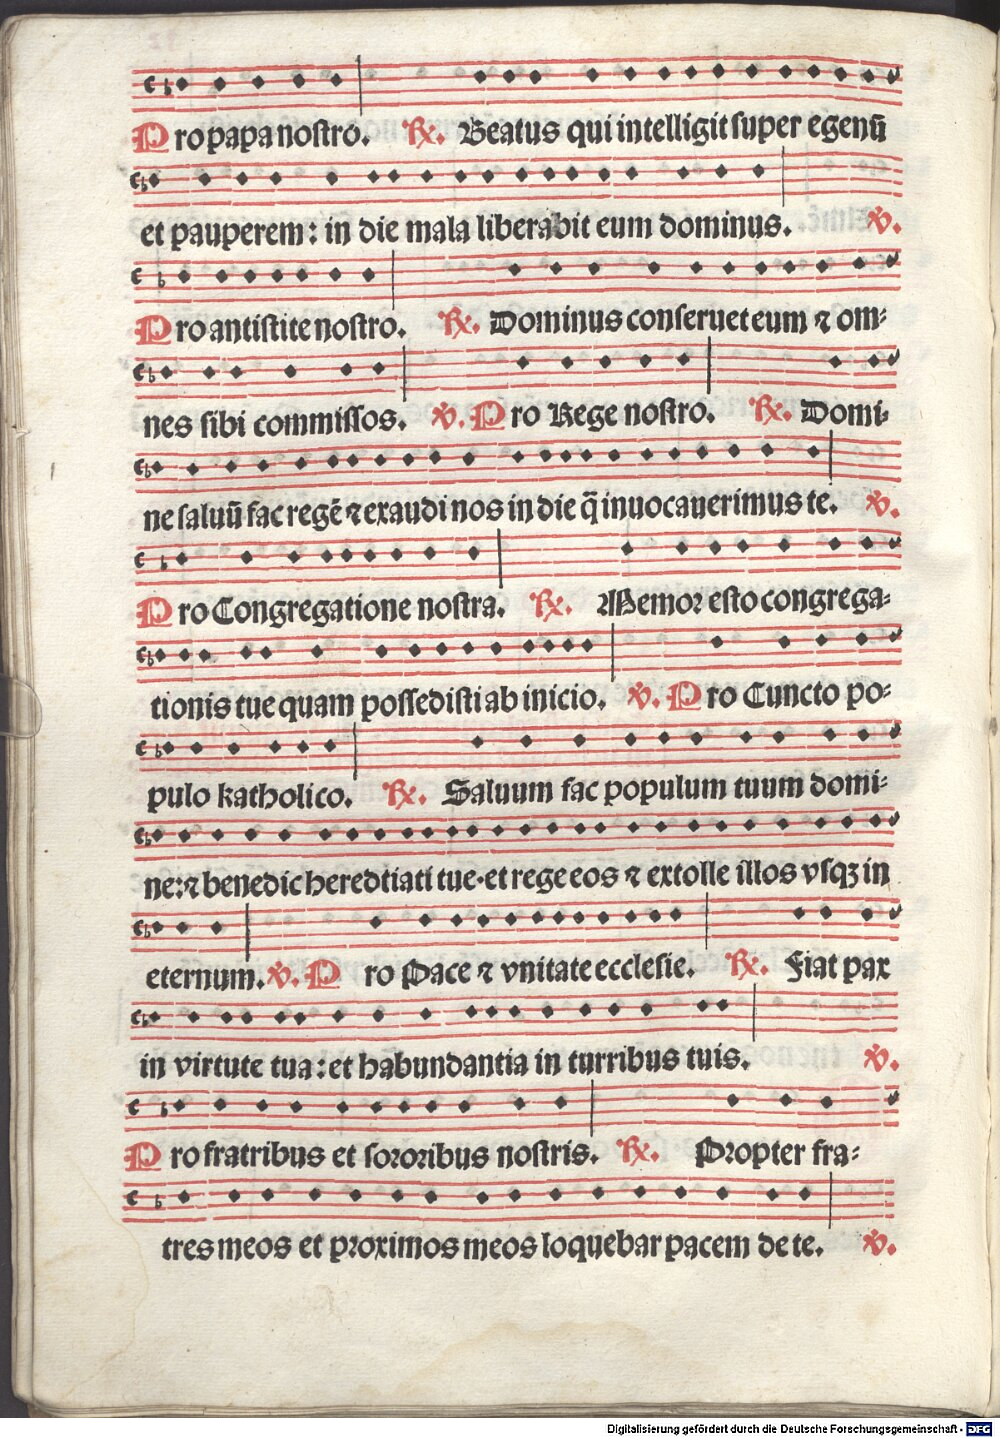 Pro papa nostro. ℟. Beatus qui intelligit super egenū
et pauperem: in die mala liberabit eum dominus. ℣.
Pro antistite nostro. ℟. Dominus conseruet eum ⁊ om⸗
nes sibi commissos. ℣. Pro Rege nostro. ℟. Domi⸗
ne saluū fac regē ⁊ exaudi nos in die q̄ inuocauerimus te. ℣.
Pro Congregatione nostra. ℟. Memor esto congrega⸗
tionis tue quam possedisti ab inicio. ℣. Pro Cuncto po⸗
pulo katholico. ℟. Saluum fac populum tuum domi⸗
ne: ⁊ benedic heredtiati tue·et rege eos ⁊ extolle illos vsqꝫ in
eternum. ℣. Pro Pace ⁊ vnitate ecclesie. ℟. Fiat pax
in virtute tua: et habundantia in turribus tuis. ℣.
Pro fratribus et sororibus nostris. ℟. Propter fra⸗
tres meos et proximos meos loquebar pacem de te. ℣.
Digitalisierung gefördert durch die Deutsche Forschungsgemeinschaft - DFG